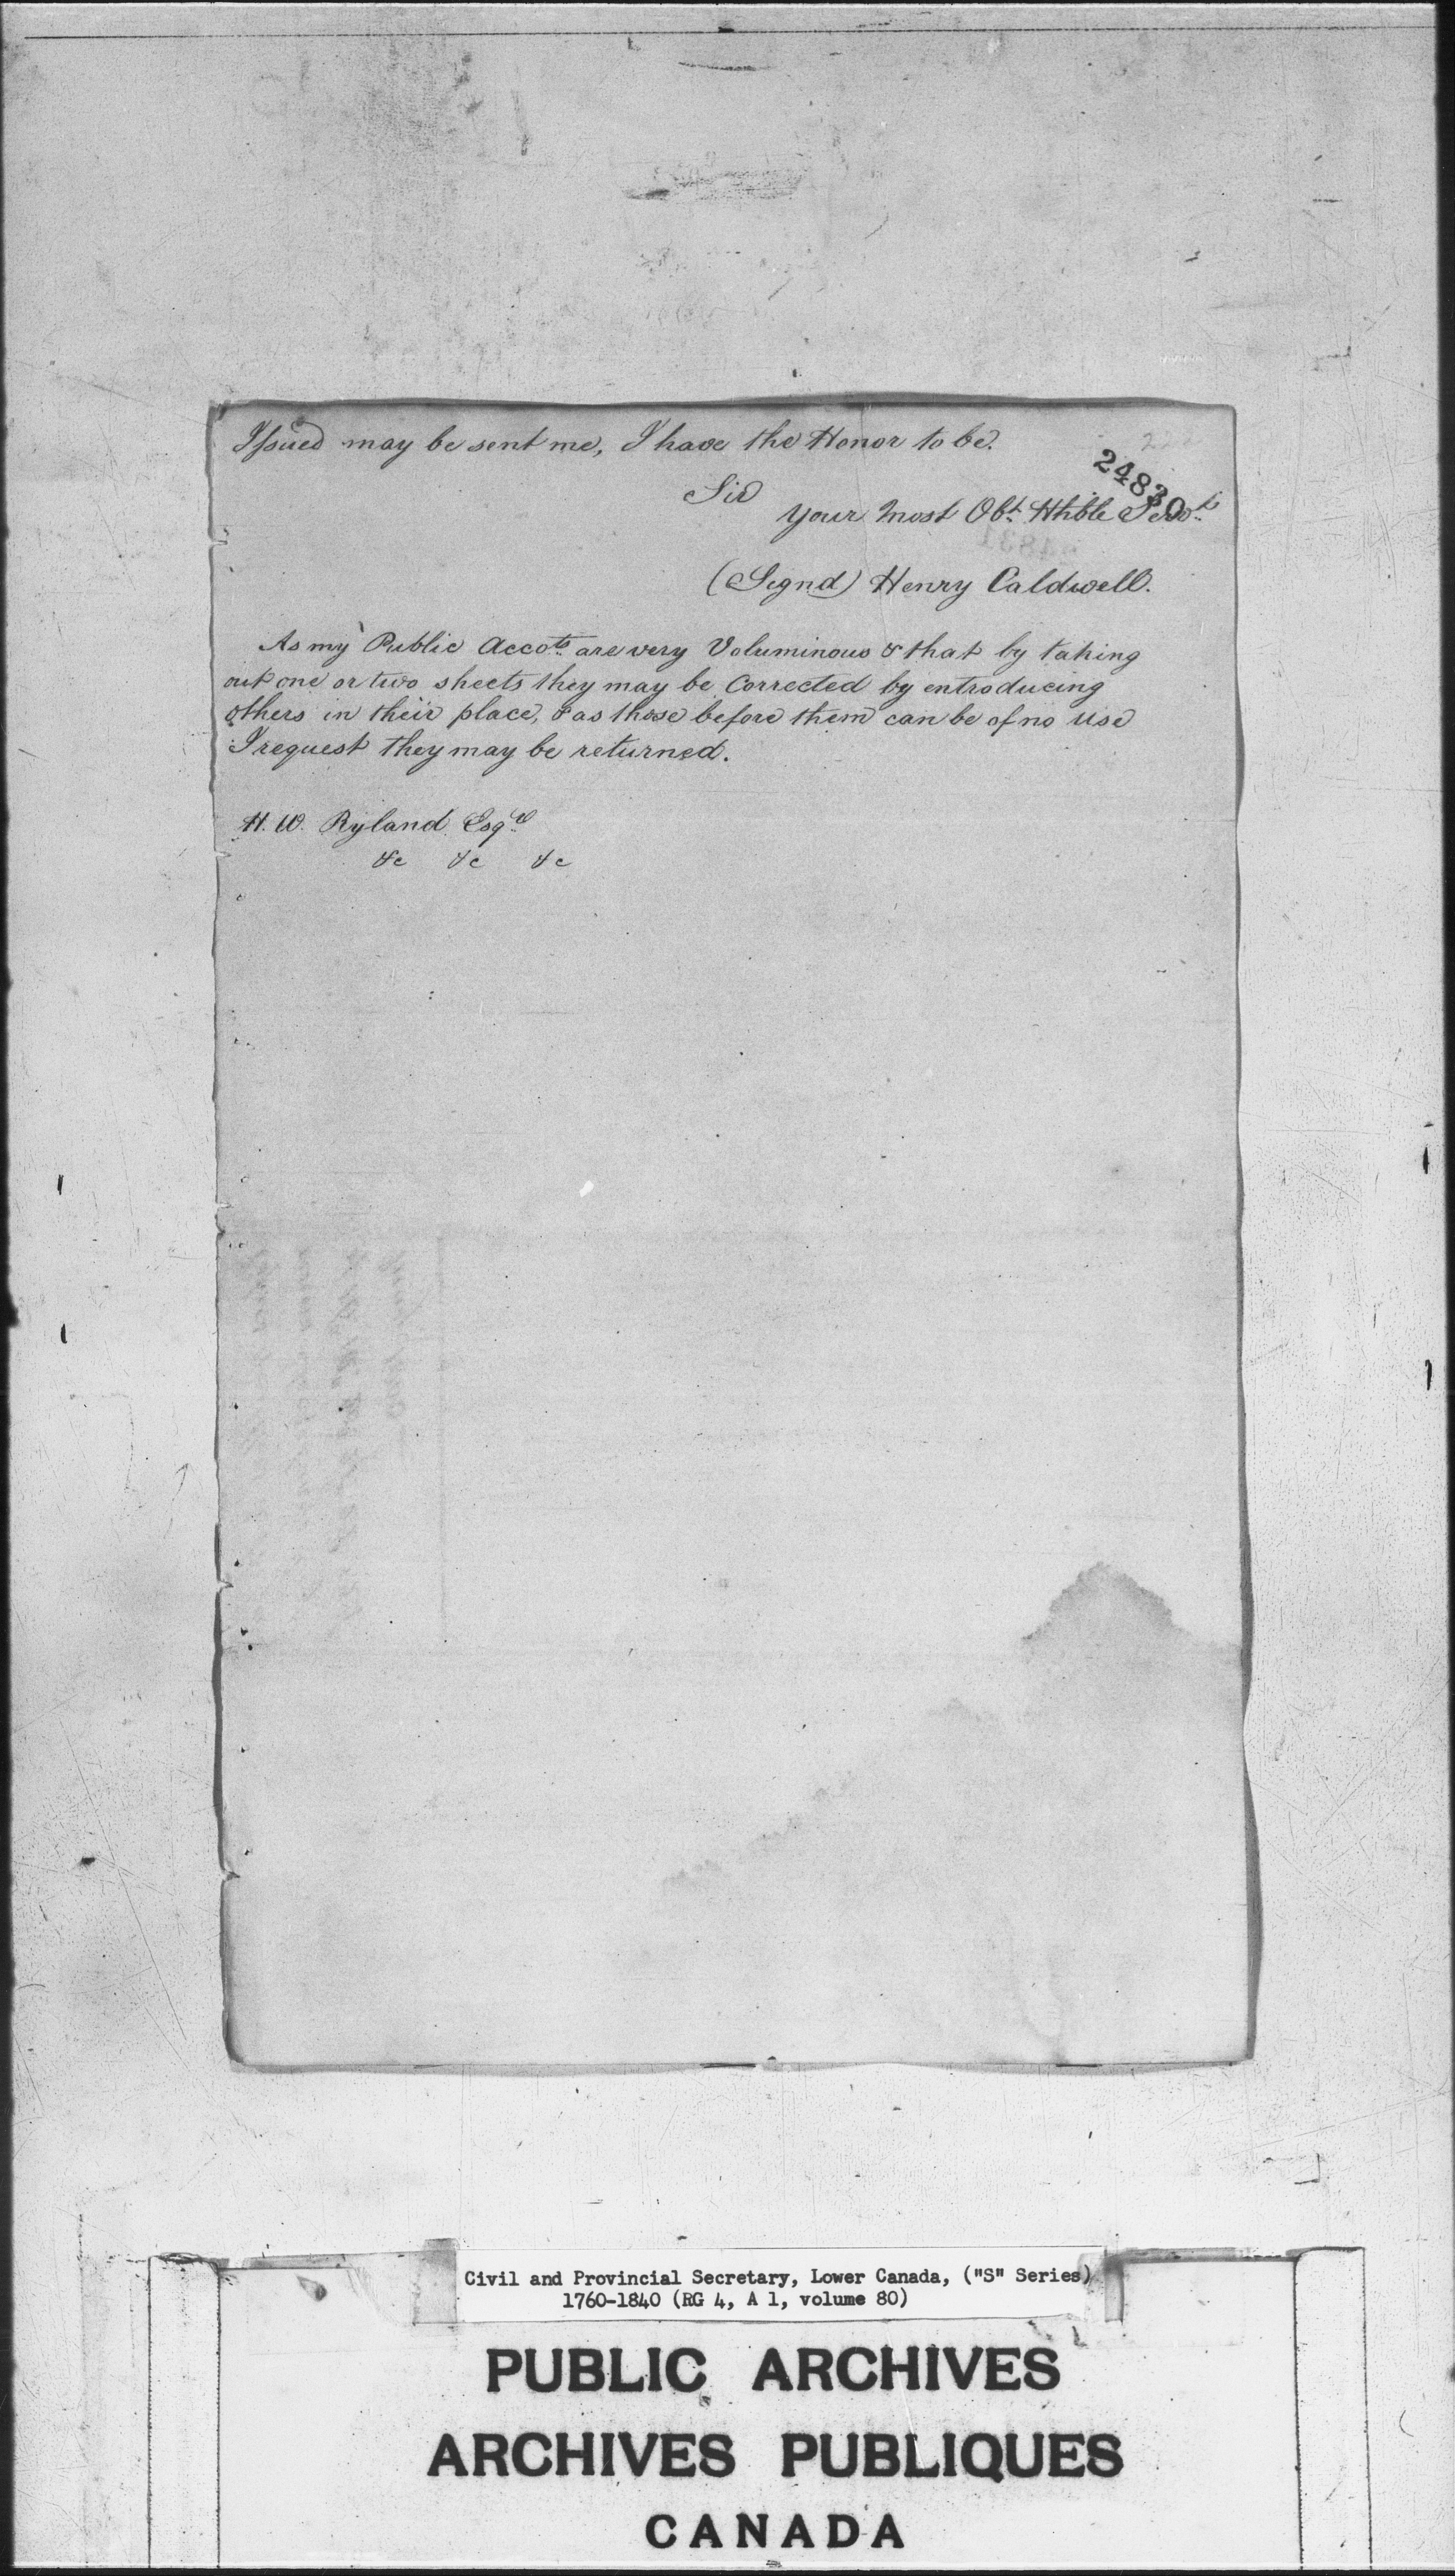 Issued may be sent me, I have the Honor to be.
24830
Sir
Your Most Obt Hble Servt
(Signd) Henry Caldwell.
As my Public Accots are very Voluminous & that by taking
out one or two sheets they may be Corrected by entroducing
others in their place, & as those before them can be of no Use
I request they may be returned.
H. W. Ryland Esqre
&c &c &c
Civil and Provincial Secretary, Lower Canada, ("S" Series)
1760-1840 (RG 4, A 1, volume 80)
PUBLIC ARCHIVES
ARCHIVES PUBLIQUES
CANADA